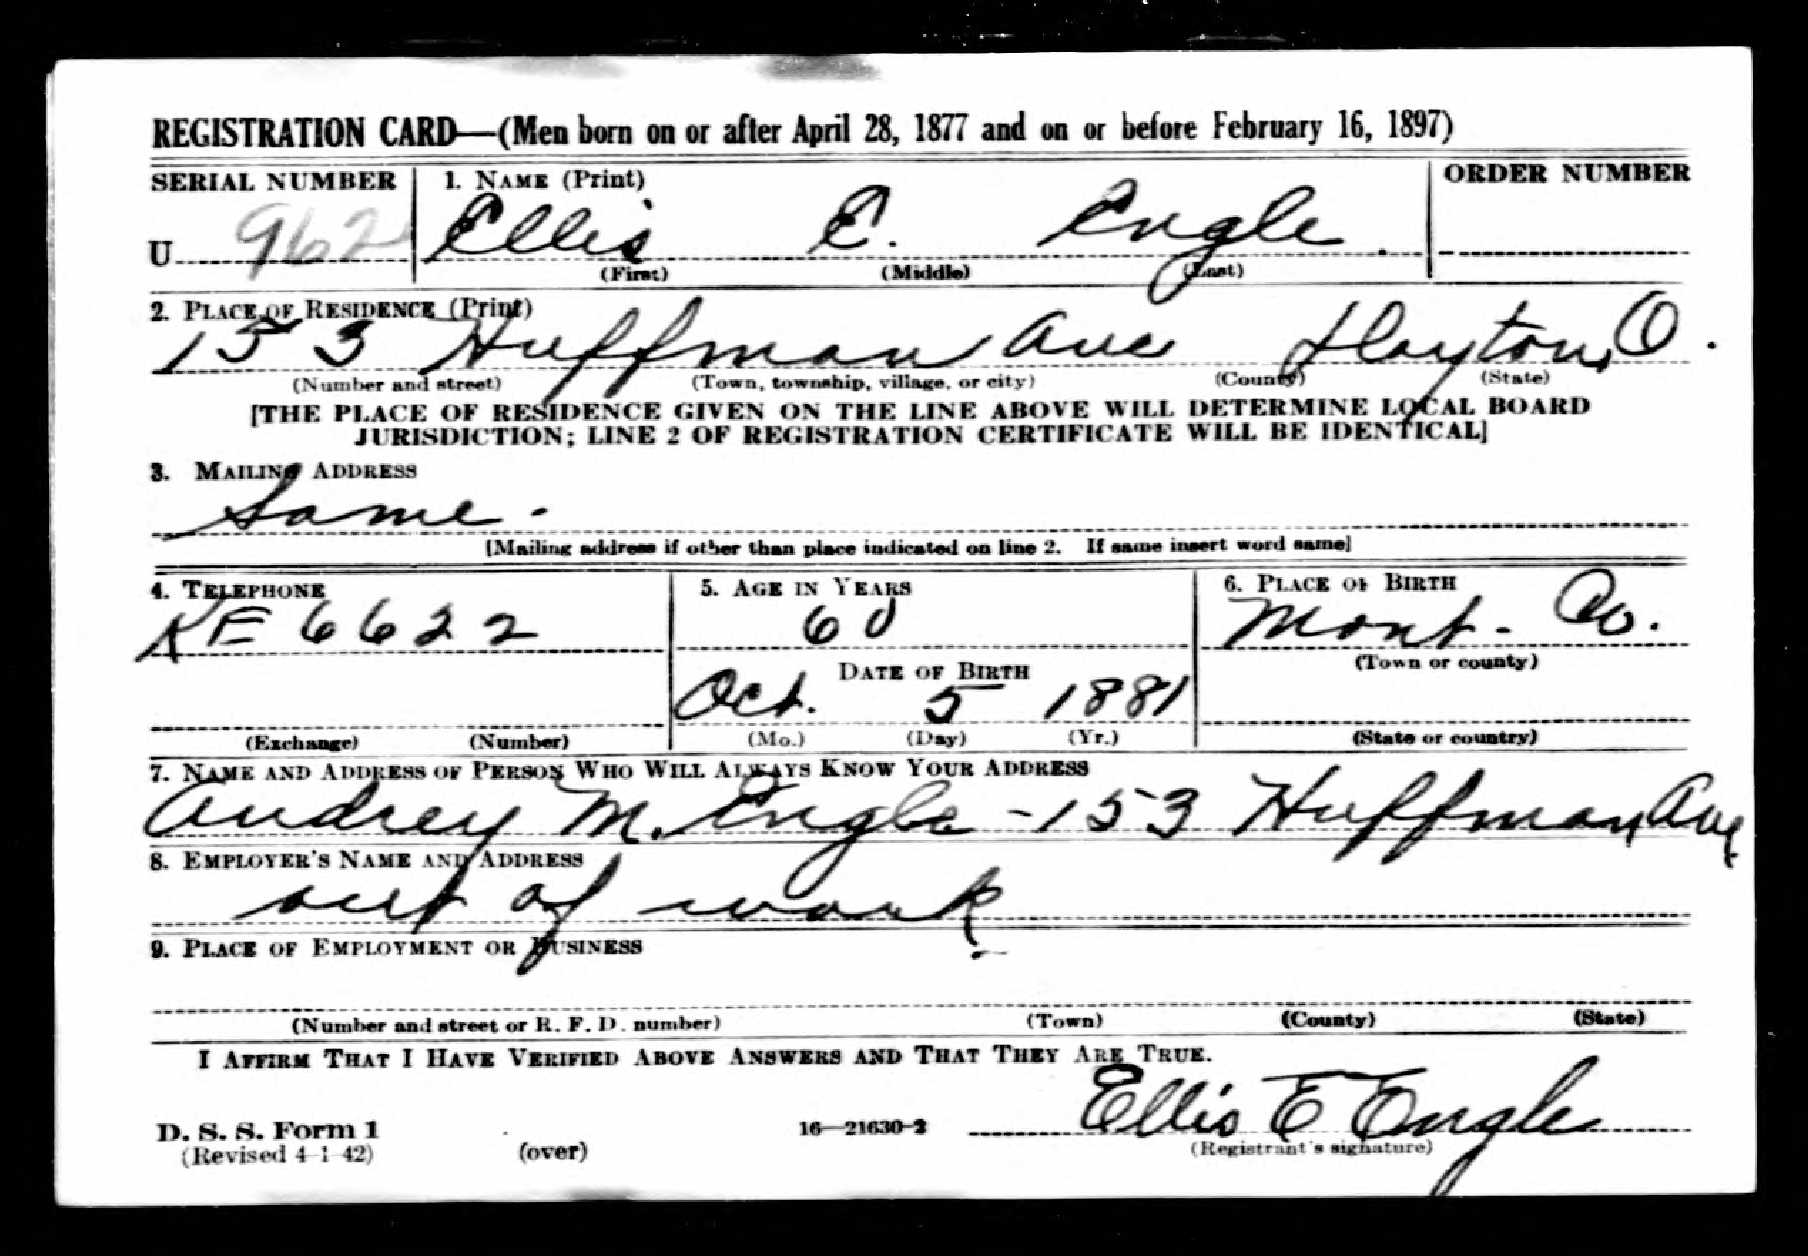 REGISTRATION CARD—(Men born on or after April 28, 1877 and on or before February 16, 1897)
SERIAL NUMBER
1. NAME (Print)
ORDER NUMBER
U 962
Ellis E. Engle.
(First) (Middle) (Last)
2. PLACE OF RESIDENCE (Print)
153 Huffman Ave Dayton, O.
(Number and street) (Town, township, village, or city) (County) (State)
[THE PLACE OF RESIDENCE GIVEN ON THE LINE ABOVE WILL DETERMINE LOCAL BOARD
JURISDICTION; LINE 2 OF REGISTRATION CERTIFICATE WILL BE IDENTICAL]
3. MAILING ADDRESS
Same.
[Mailing address if other than place indicated on line 2. If same insert word same]
4. TELEPHONE
5. AGE IN YEARS
6. PLACE OF BIRTH
KE 6622
60
Mont. Co.
(Town or county)
DATE OF BIRTH
Oct. 5 1881
(Exchange) (Number)
(Mo.) (Day) (Yr.)
(State or country)
7. NAME AND ADDRESS OF PERSON WHO WILL ALWAYS KNOW YOUR ADDRESS
Audrey M. Engle - 153 Huffman Ave
8. EMPLOYER'S NAME AND ADDRESS
out of work
9. PLACE OF EMPLOYMENT OR BUSINESS
(Number and street or R. F. D. number) (Town) (County) (State)
I AFFIRM THAT I HAVE VERIFIED ABOVE ANSWERS AND THAT THEY ARE TRUE.
Ellis E Engle
D. S. S. Form 1
(Revised 4-1-42)
(over)
16—21630-2
(Registrant's signature)